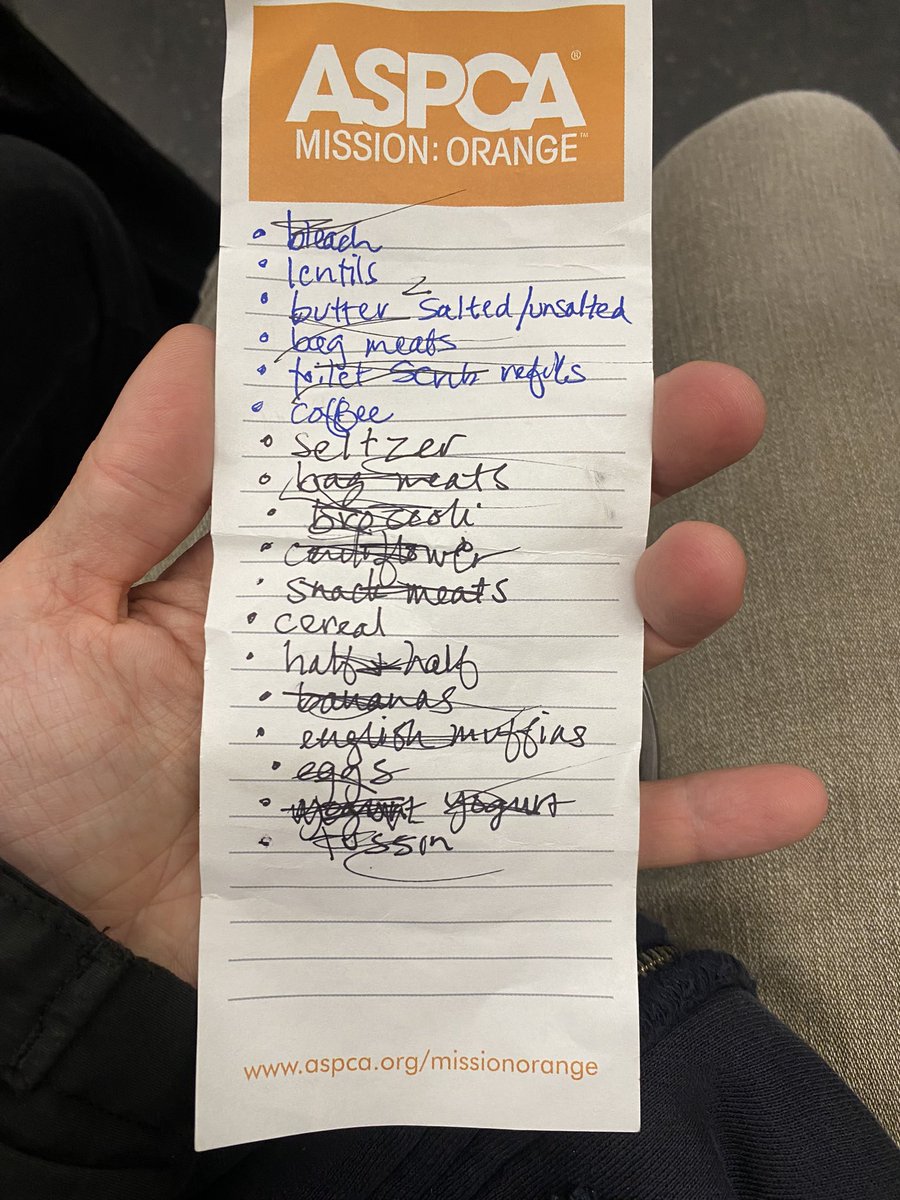 ASPCA®
MISSION: ORANGE™
• bleach
• lentils
• butter 2 salted/unsalted
• bag meats
• toilet scrub refills
• coffee
• seltzer
• bag meats
• broccoli
• cauliflower
• snack meats
• cereal
• half + half
• bananas
• english muffins
• eggs
• yogurt yogurt
• tussin
www.aspca.org/missionorange